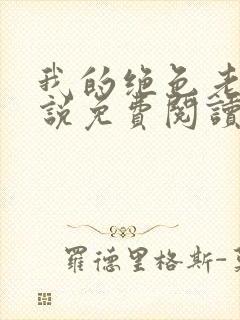 我的绝色老
说免費閱讀
羅德里格斯-莫